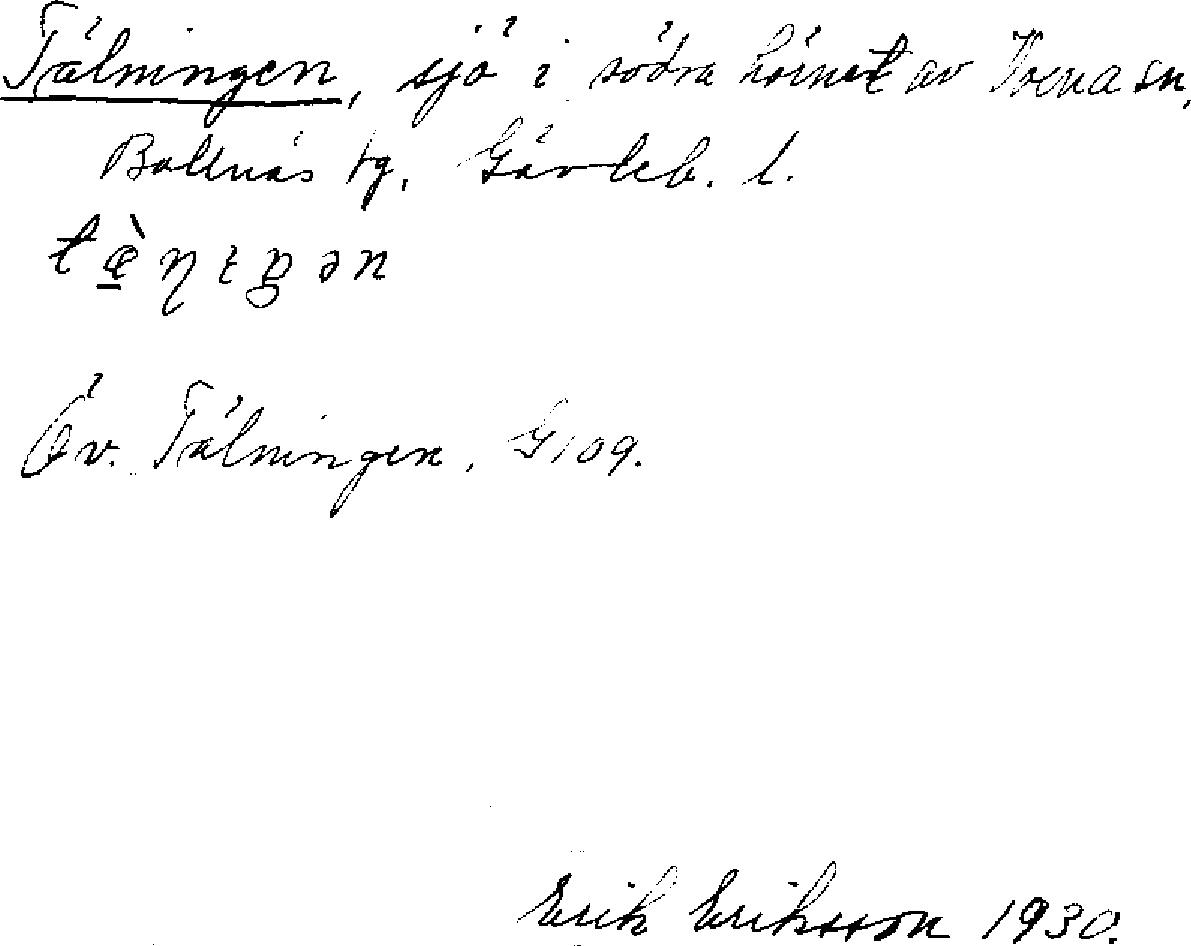 Tälningen, sjö i södra hörnet av Voxna sn,
Bollnäs tg, Gävleb. l.
Öv. Tälningen, G109.
Erik Eriksson 1930.